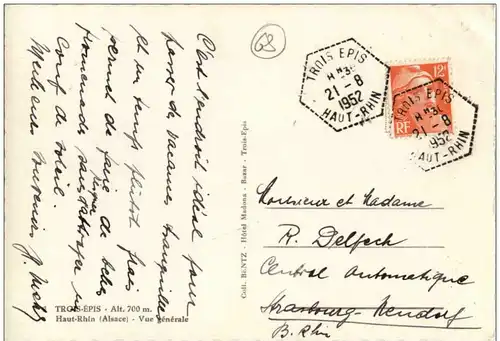 C'est l'endroit idéal pour
passer de vacances tranquilles
et un temps plutôt frais
permet de faire de belles
promenades sans attraper un
risque
coup de soleil.
Meilleurs Souvenirs
TROIS-ÉPIS - Alt. 700 m.
Haut-Rhin (Alsace) - Vue générale
Coll. BENTZ - Hôtel Madona - Bazar - Trois-Epis
68
TROIS EPIS
21-8
1952
HAUT-RHIN
12F
RF
TROIS EPIS
21-8
1952
HAUT-RHIN
Monsieur et Madame
R. Delpech
Central Automatique
Strasbourg-Neudorf
B. Rhin